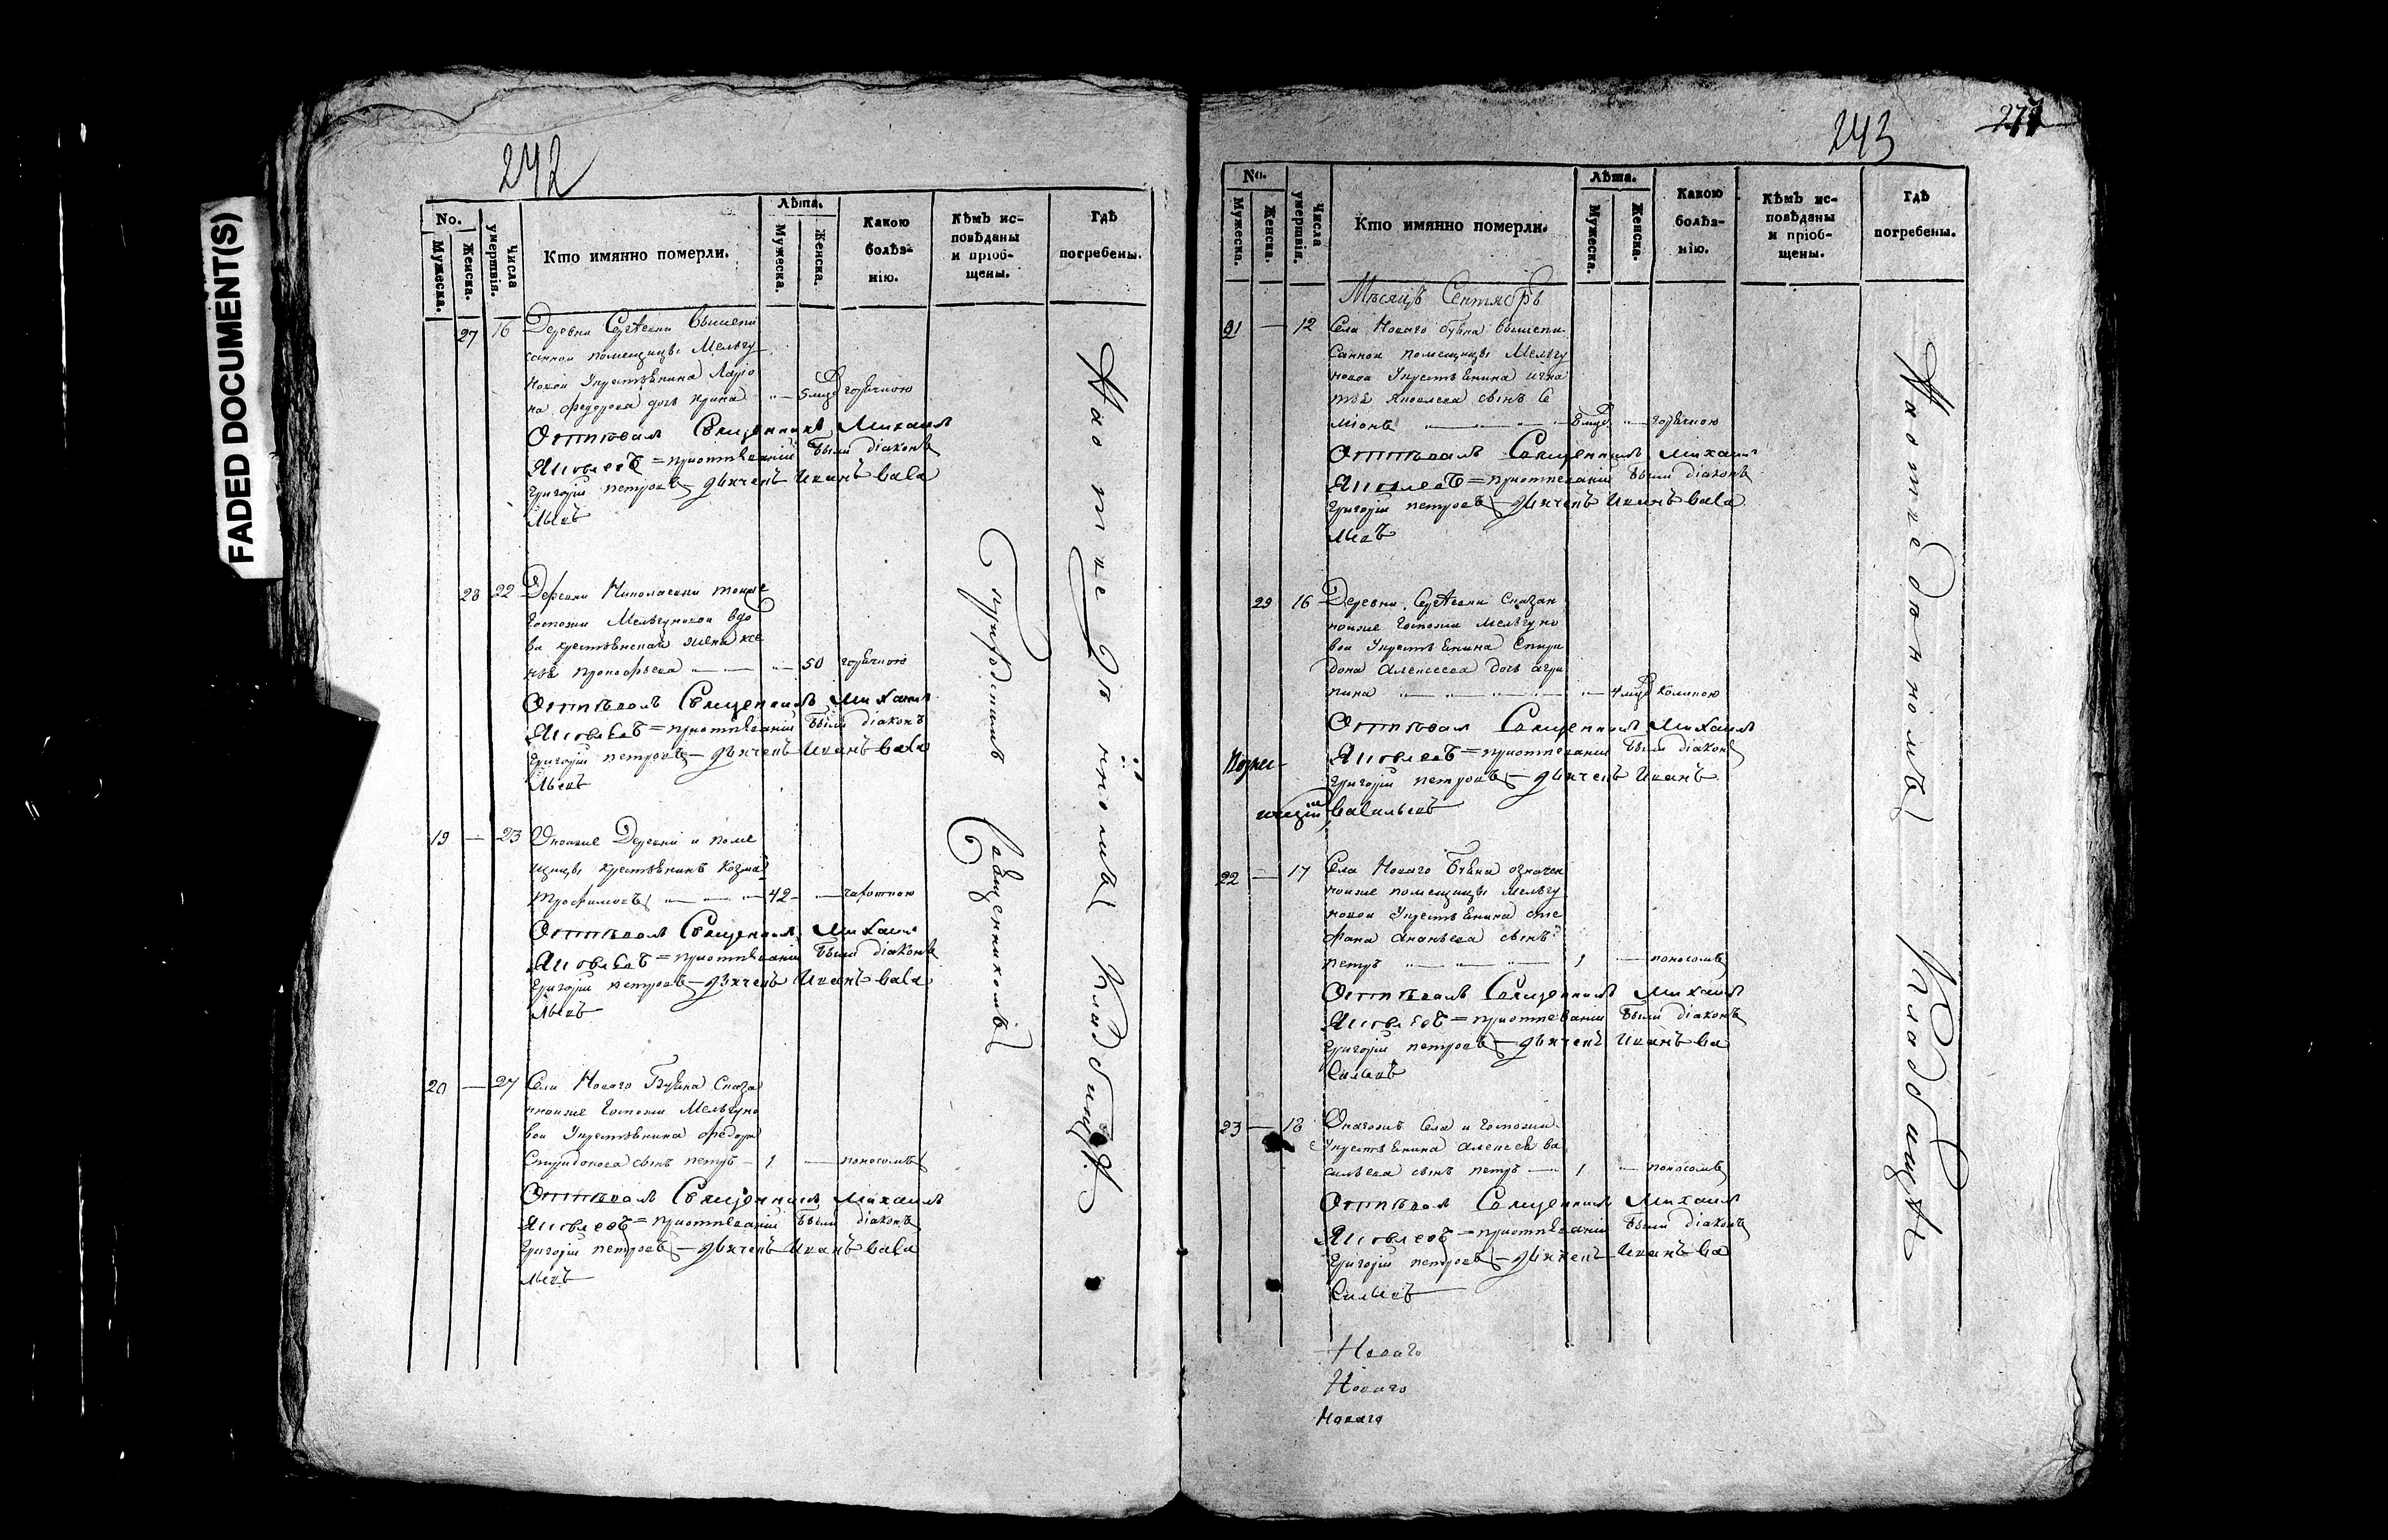 FADED DOCUMENT(S)
242
No.
Мужеска.
Женска.
Числа умертвія.
Кто имянно померли.
Лѣта.
Мужеска.
Женска.
Какою болѣз-
нію.
Кѣмъ ис-
повѣданы
и пріоб-
щены.
Гдѣ
погребены.
27 16 Деревни Сергѣевки вышепи
санной помещицы Мельгу
новой крестьянина Ларіо
на Федорова дочь Ирина 5 горячкою
Отпѣвалъ Священникъ Михаилъ
Яковлевъ = приотпеваніи были діаконъ
Григорій петровъ — дьячекъ Иванъ Васи
льевъ
28 22 Деревни Николаевки тояже
Госпожи Мельгуновой вдо
ва крестьянская жена
Прокофьева 50 горячкою
Отпѣвалъ Священникъ Михаилъ
Яковлевъ = приотпѣваніи былъ діаконъ
Григорій петровъ — дьячекъ Иванъ Васи
льевъ
19 — 23 Оноиже Деревни и поме
щицы крестьянинъ Козма
Трофимовъ 42 — чахоткою
Отпѣвалъ Священникъ Михаилъ
Яковлевъ = приотпѣваніи были діаконъ
Григорій петровъ — дьячекъ Иванъ Васи
льевъ
20 — 27 Села Новаго Буяна Сказа
нноиже Госпожи Мельгуно
вои крестьянина Федора
Спиридонова сынъ петръ — 1 — поносомъ
Отпѣвалъ Священникъ Михаилъ
Яковлевъ = приотпѣваніи были діаконъ
Григорій петровъ — дьячекъ Иванъ Васи
льевъ
приходскимъ Священникомъ
На отведенномъ Кладбищѣ
243
277
No.
Мужеска.
Женска.
Числа умертвія.
Кто имянно померли.
Лѣта.
Мужеска.
Женска.
Какою
болѣз-
нію.
Кѣмъ ис-
повѣданы
и пріоб-
щены.
Гдѣ
погребены.
Мѣсяцъ Сентябрь
21 — 12 Села Новаго буяна вышепи
санной помещицы Мельгу
новой крестьянина Игна
тья Яковлева сынъ Се
міонъ 8 — горячкою
Отпѣвалъ Священникъ Михаилъ
Яковлевъ = приотпеваніи были діаконъ
Григорій петровъ — дьячекъ Иванъ Васи
льевъ
29 16 Деревни Сергѣевки Сказан
ноиже Госпожи Мельгуно
вои крестьянина Спири
дона Алексеева дочь агри
пина 4
Отпѣвалъ Священникъ Михаилъ
Яковлевъ = приотпеваніи были діаконъ
Григорій петровъ — дьячекъ Иванъ
Васильевъ
22 — 17 Села Новаго Буяна означен
ноиже помещицы Мельгу
новои крестьянина сте
фана Ананьева сынъ
петръ 1 — поносомъ
Отпѣвалъ Священникъ Михаилъ
Яковлевъ = приотпеваніи были діаконъ
Григорій петровъ — дьячекъ Иванъ Ва
сильевъ
23 — 18 Онагожъ Села и госпожи
крестьянина алексея ва
сильева сынъ петръ — 1 — поносомъ
Отпѣвалъ Священникъ Михаилъ
Яковлевъ = приотпѣваніи были діаконъ
Григорій петровъ — дьячекъ Иванъ Ва
сильевъ
На отведенномъ Кладбищѣ
Новаго
Новаго
Новаго